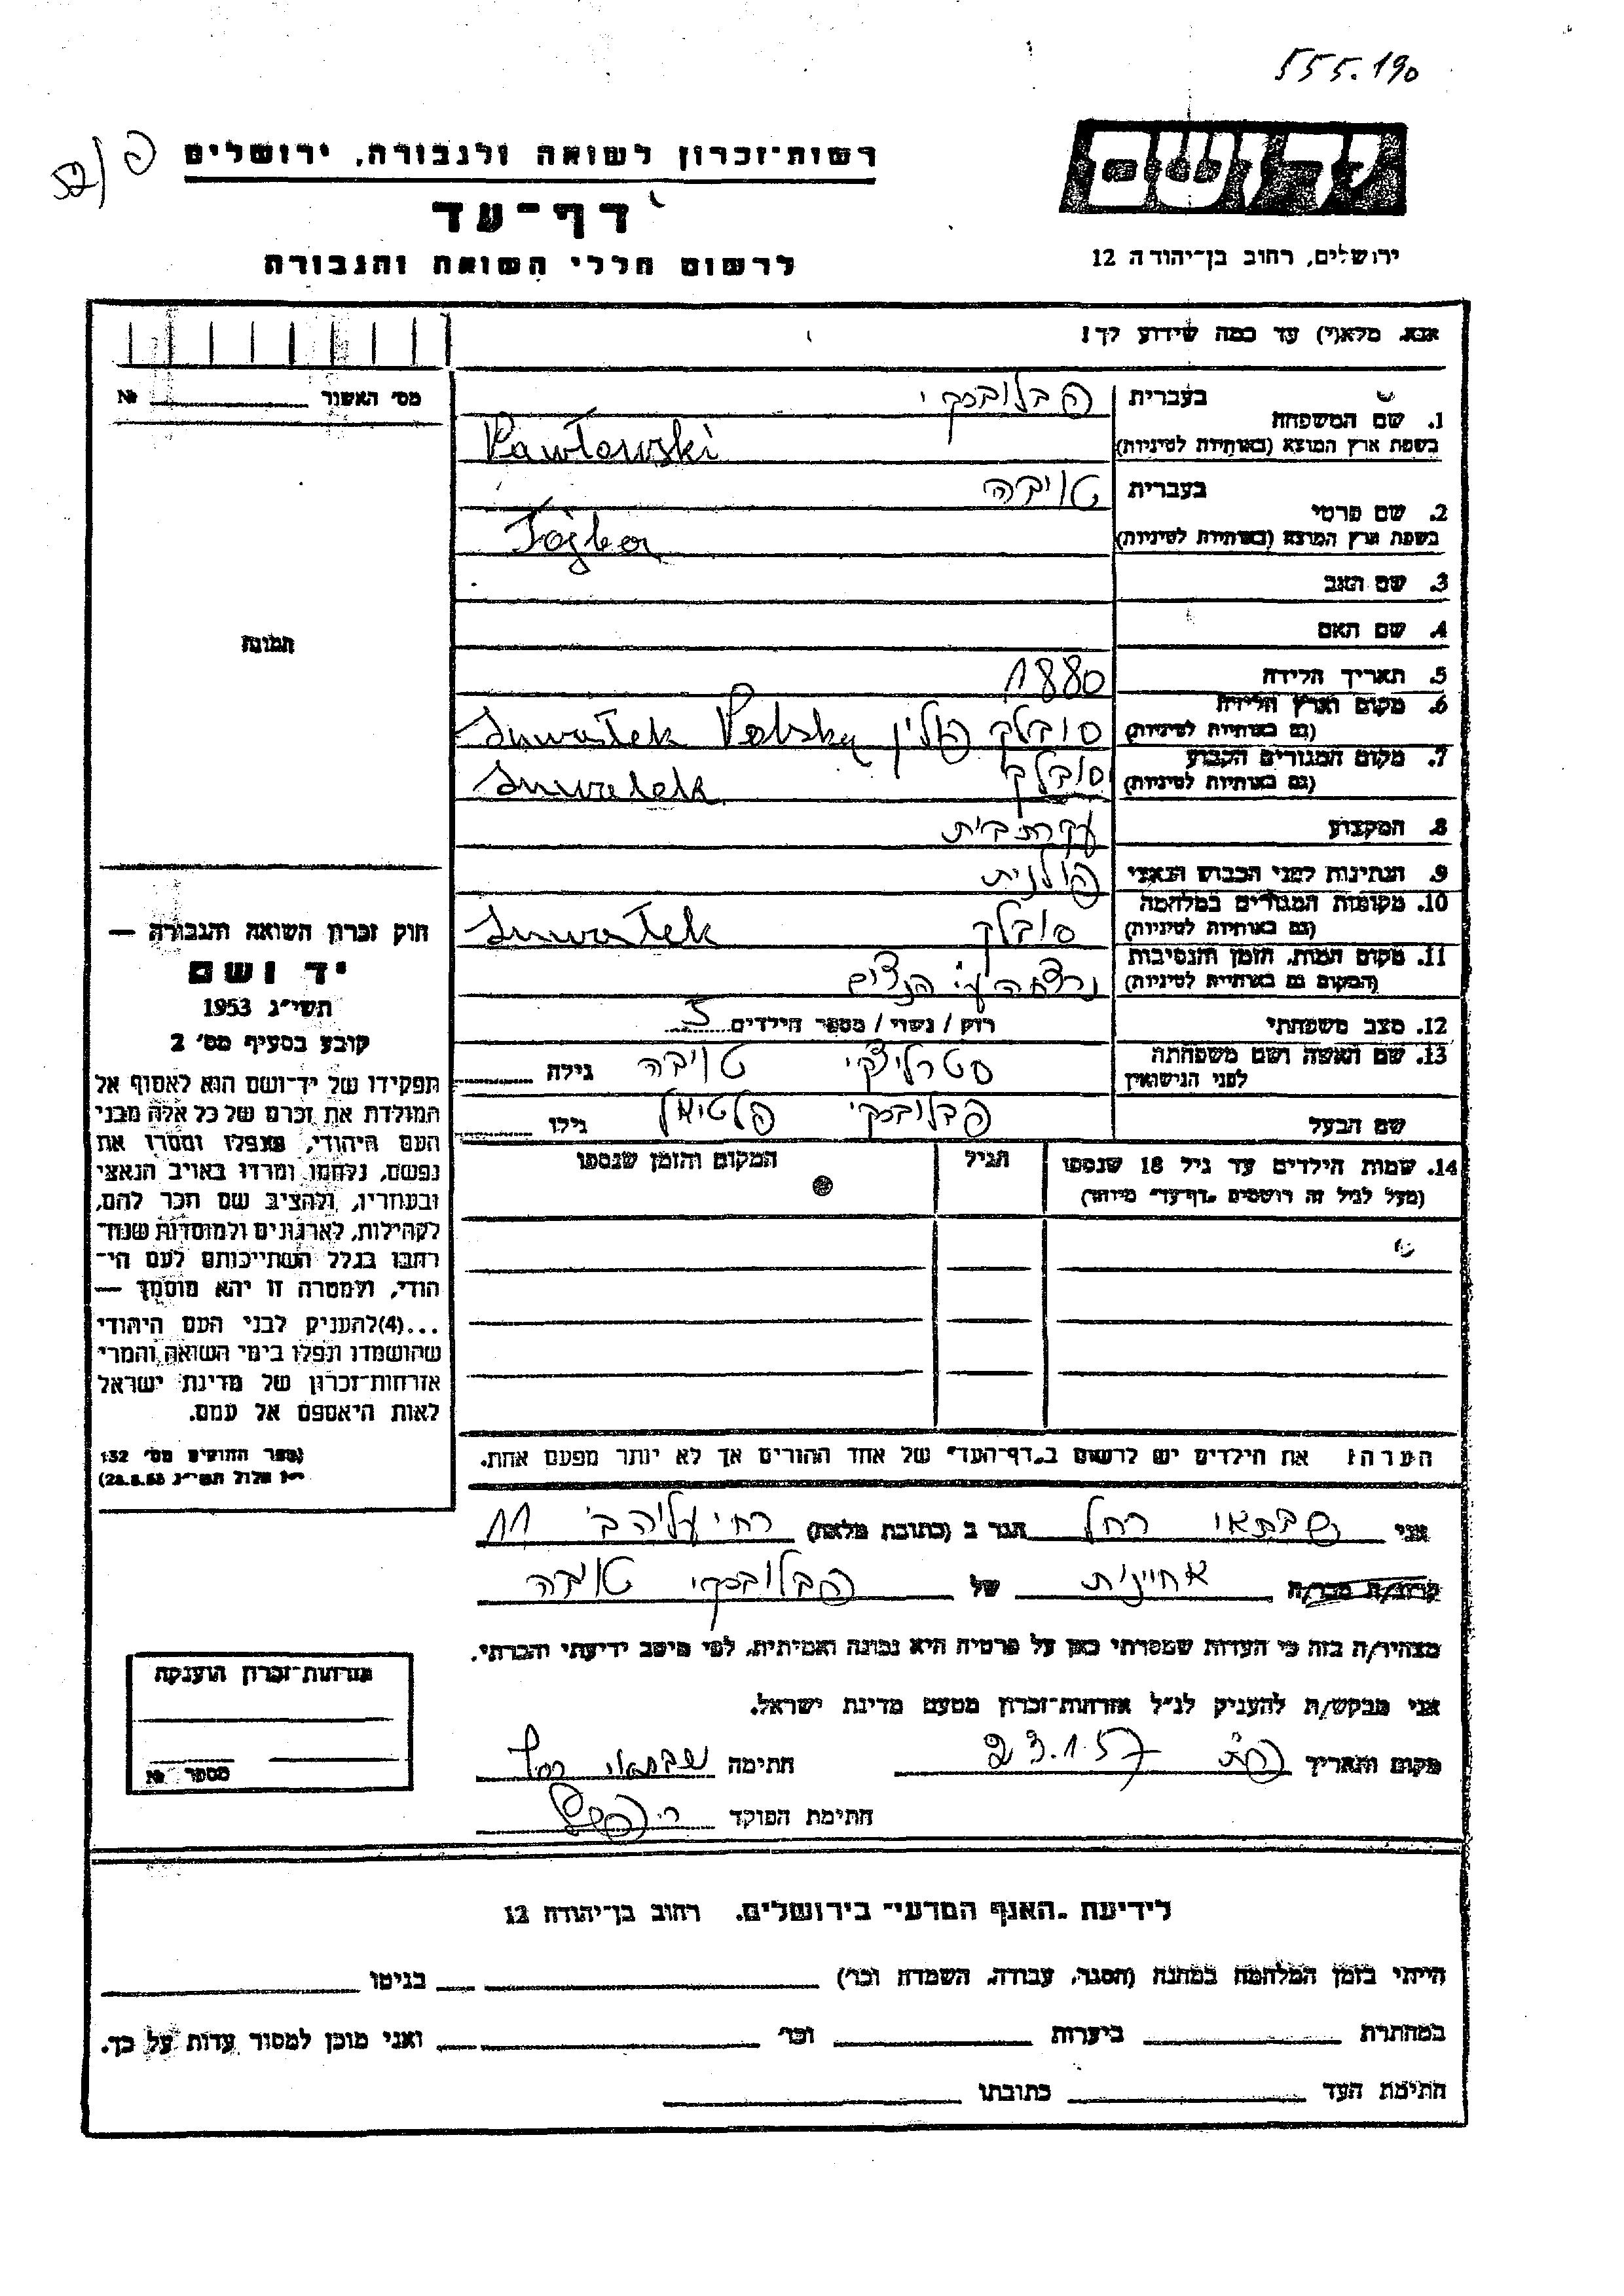 555.190
52/פ
רשות־זכרון לשואה ולגבורה, ירושלים
דף־עד
לרשום חללי השואה והגבורה
ידושם
ירושלים, רחוב בן־יהודה 12
אנא, מלא(י) עד כמה שידוע לך!
מס' האשור №
1. שם המשפחה בעברית פבלובסקי
בשפת ארץ המוצא (באותיות לטיניות) Pawłowski
2. שם פרטי בעברית טויבה
בשפת ארץ המוצא (באותיות לטיניות)
3. שם האב
4. שם האם
תמונה
5. תאריך הלידה 1880
6. מקום וארץ הלידה (גם באותיות לטיניות) סובלק פולין
7. מקום המגורים הקבוע (גם באותיות לטיניות) סובלק
8. המקצוע עקרת בית
9. הנתינות לפני הכבוש הנאצי פולנית
10. מקומות המגורים במלחמה (גם באותיות לטיניות) סובלק
11. מקום המות, הזמן והנסיבות (המקום גם באותיות לטיניות) נרצחה ע"י הנצים
12. מצב משפחתי רוק / נשוי / מספר הילדים 5
13. שם האשה ושם משפחתה לפני הנישואין טויבה גילה
שם הבעל פבלובסקי פלטיאל גילו
14. שמות הילדים עד גיל 18 שנספו הגיל המקום והזמן שנספו
(מעל לגיל זה רושמים „דף־עד" מיוחד)
חוק זכרון השואה והגבורה —
יד ושם
תשי"ג 1953
קובע בסעיף מס' 2
תפקידו של יד־ושם הוא לאסוף אל
המולדת את זכרם של כל אלה מבני
העם היהודי, שנפלו ומסרו את
נפשם, נלחמו ומרדו באויב הנאצי
ובעוזריו, ולהציב שם וזכר להם,
לקהילות, לארגונים ולמוסדות שנח־
רבו בגלל השתייכותם לעם הי־
הודי, ולמטרה זו יהא מוסמך —
...(4) להעניק לבני העם היהודי
שהושמדו ונפלו בימי השואה והמרי
אזרחות־זכרון של מדינת ישראל
לאות היאספם אל עמם.
(ספר החוקים מס' 132
י"ז אלול תשי"ג 28.8.53)
הערה: את הילדים יש לרשום ב„דף־העד" של אחד ההורים אך לא יותר מפעם אחת.
אני שבתאי רחל הגר ב (כתובת מלאה) רח' עליה ב' 11
קרוב/ה מכר/ה אחינית של פבלובסקי טויבה
מצהיר/ה בזה כי העדות שמסרתי כאן על פרטיה היא נכונה ואמיתית, לפי מיטב ידיעתי והכרתי.
אני מבקש/ת להעניק לנ"ל אזרחות־זכרון מטעם מדינת ישראל.
מקום ותאריך 23.1.57 חתימה שבתאי רחל
חתימת הפוקד
אזרחות־זכרון הוענקה
מספר №
לידיעת „האגף המדעי" בירושלים, רחוב בן־יהודה 12
הייתי בזמן המלחמה במחנה (הסגר, עבודה, השמדה וכו') בגיטו
במחתרת ביערות וכו' ואני מוכן למסור עדות על כך.
חתימת העד כתובתו